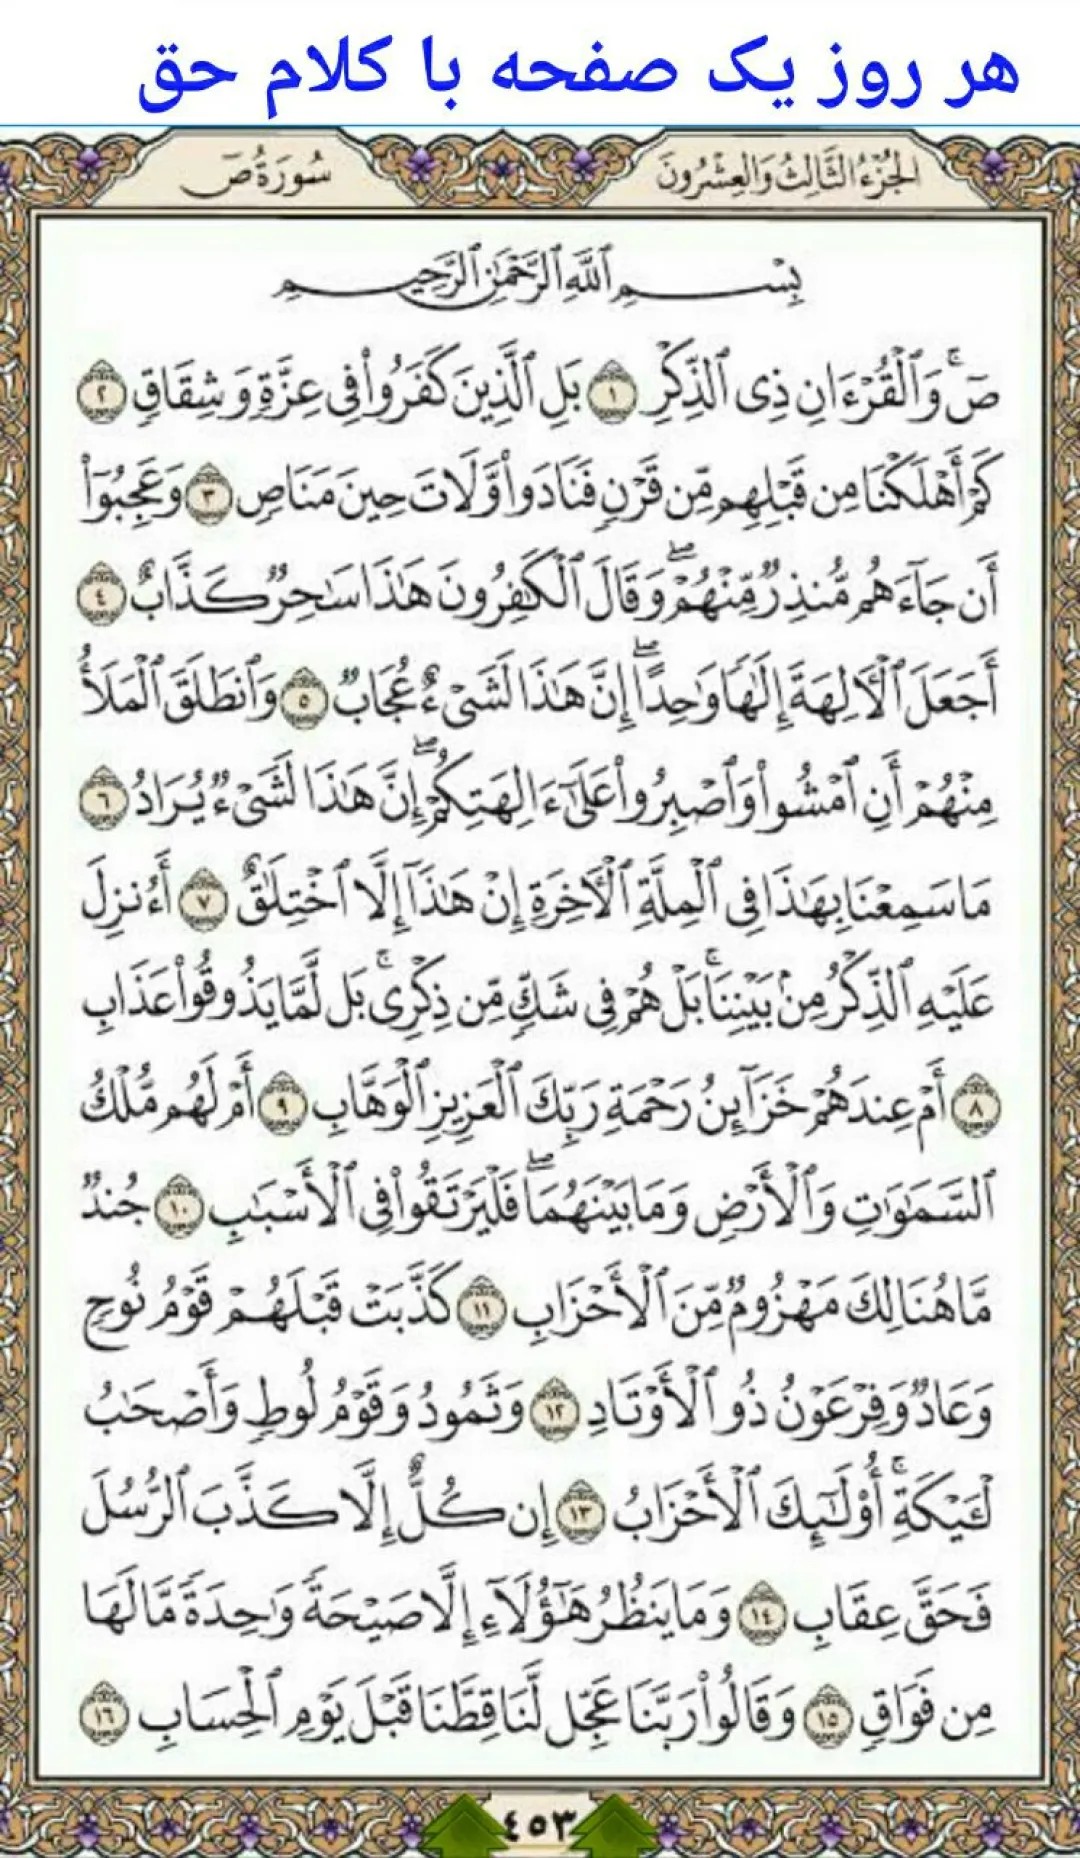 هر روز یک صفحه با کلام حق
الجُزْءُ الثَّالِثُ وَالعِشْرُونَ
سُورَةُ صٓ
بِسْمِ ٱللَّهِ ٱلرَّحْمَٰنِ ٱلرَّحِيمِ
صٓۚ وَٱلْقُرْءَانِ ذِى ٱلذِّكْرِ ١ بَلِ ٱلَّذِينَ كَفَرُوا۟ فِى عِزَّةٍ وَشِقَاقٍ ٢
كَمْ أَهْلَكْنَا مِن قَبْلِهِم مِّن قَرْنٍ فَنَادَوا۟ وَّلَاتَ حِينَ مَنَاصٍ ٣ وَعَجِبُوٓا۟
أَن جَآءَهُم مُّنذِرٌ مِّنْهُمْۖ وَقَالَ ٱلْكَٰفِرُونَ هَٰذَا سَٰحِرٌ كَذَّابٌ ٤
أَجَعَلَ ٱلْءَالِهَةَ إِلَٰهًا وَٰحِدًاۖ إِنَّ هَٰذَا لَشَىْءٌ عُجَابٌ ٥ وَٱنطَلَقَ ٱلْمَلَأُ
مِنْهُمْ أَنِ ٱمْشُوا۟ وَٱصْبِرُوا۟ عَلَىٰٓ ءَالِهَتِكُمْۖ إِنَّ هَٰذَا لَشَىْءٌ يُرَادُ ٦
مَا سَمِعْنَا بِهَٰذَا فِى ٱلْمِلَّةِ ٱلْءَاخِرَةِ إِنْ هَٰذَآ إِلَّا ٱخْتِلَٰقٌ ٧ أَءُنزِلَ
عَلَيْهِ ٱلذِّكْرُ مِنۢ بَيْنِنَاۚ بَلْ هُمْ فِى شَكٍّ مِّن ذِكْرِىۚ بَل لَّمَّا يَذُوقُوا۟ عَذَابِ
٨ أَمْ عِندَهُمْ خَزَآئِنُ رَحْمَةِ رَبِّكَ ٱلْعَزِيزِ ٱلْوَهَّابِ ٩ أَمْ لَهُم مُّلْكُ
ٱلسَّمَٰوَٰتِ وَٱلْأَرْضِ وَمَا بَيْنَهُمَاۖ فَلْيَرْتَقُوا۟ فِى ٱلْأَسْبَٰبِ ١٠ جُندٌ
مَّا هُنَالِكَ مَهْزُومٌ مِّنَ ٱلْأَحْزَابِ ١١ كَذَّبَتْ قَبْلَهُمْ قَوْمُ نُوحٍ
وَعَادٌ وَفِرْعَوْنُ ذُو ٱلْأَوْتَادِ ١٢ وَثَمُودُ وَقَوْمُ لُوطٍ وَأَصْحَٰبُ
لْـَٔيْكَةِۚ أُو۟لَٰٓئِكَ ٱلْأَحْزَابُ ١٣ إِن كُلٌّ إِلَّا كَذَّبَ ٱلرُّسُلَ
فَحَقَّ عِقَابِ ١٤ وَمَا يَنظُرُ هَٰٓؤُلَآءِ إِلَّا صَيْحَةً وَٰحِدَةً مَّا لَهَا
مِن فَوَاقٍ ١٥ وَقَالُوا۟ رَبَّنَا عَجِّل لَّنَا قِطَّنَا قَبْلَ يَوْمِ ٱلْحِسَابِ ١٦
٤٥٣